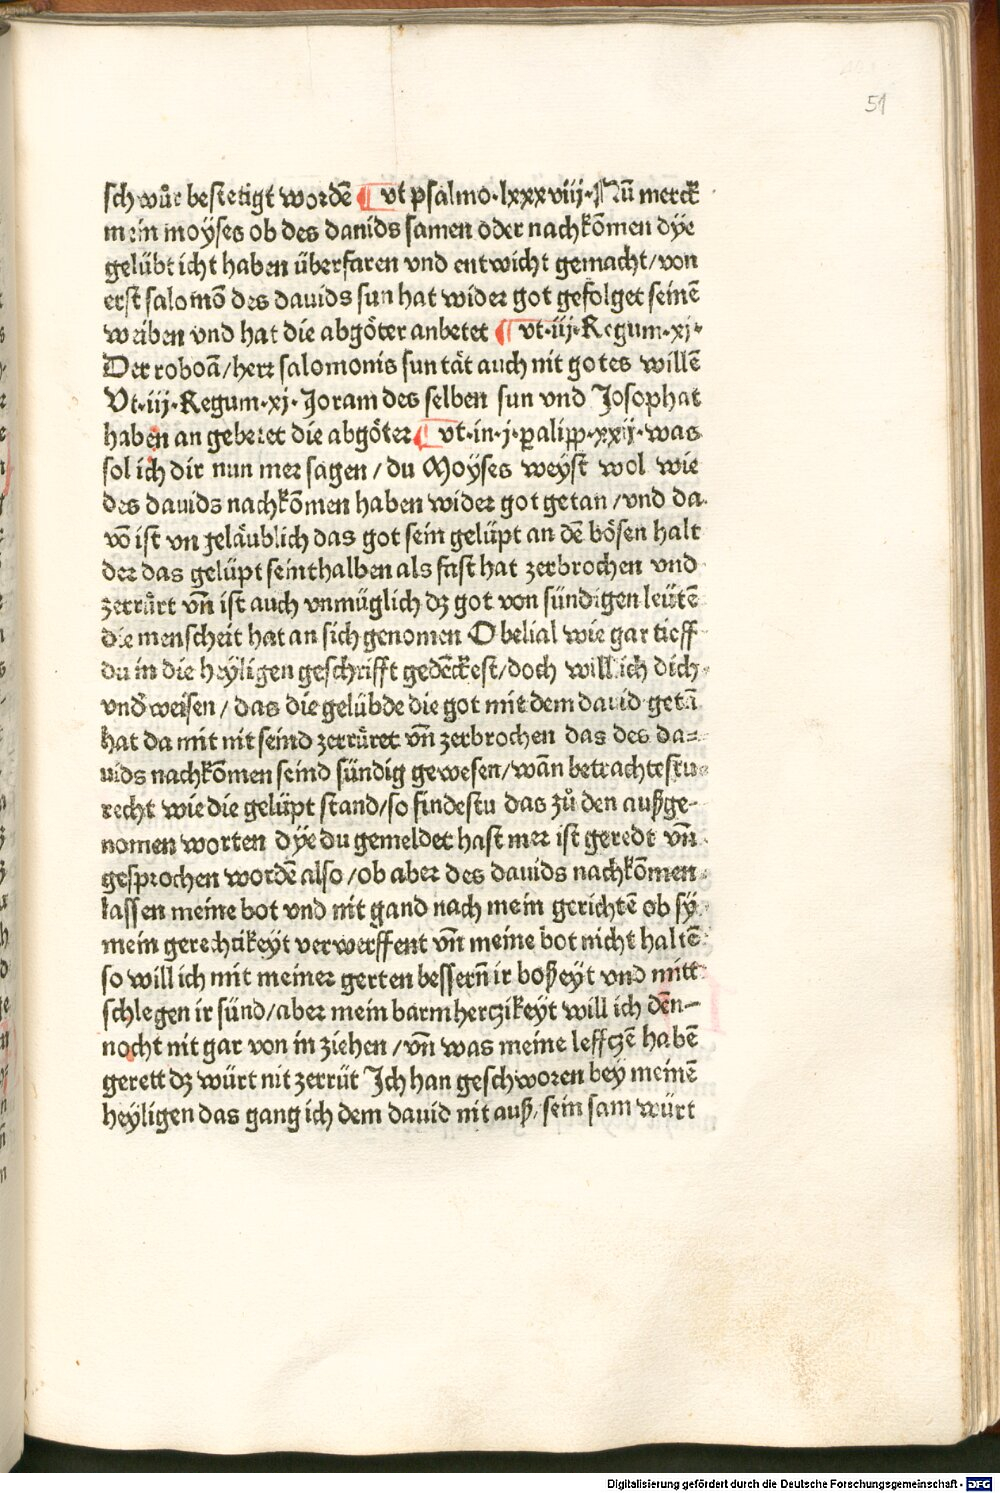 51
schwůr bestetigt wordē ¶ vt psalmo·lxxxviij·Nū merck
mein moyses ob des dauids samen oder nachkōmen dye
gelübt icht haben überfaren vnd entwicht gemacht/von
erst salomō des dauids sun hat wider got gefolget seinē
weiben vnd hat die abgöter anbetet ¶ vt·iij·Regum·xj·
Der roboā/herr salomonis sun tät auch nit gotes willē
Vt·iij·Regum·xj·Joram des selben sun vnd Josophat
haben an gebetet die abgöter ¶ vt·in·j·palipp·xxij·was
sol ich dir nun mer sagen/du Moyses weyst wol wie
des dauids nachkōmen haben wider got getan/vnd da
vō ist vngeläublich das got sein gelüpt an dē bösen halt
der das gelüpt seinthalben als fast hat zerbrochen vnd
zerrůrt vn̄ ist auch vnmüglich dz got von sündigen leütē
die menscheit hat an sich genomen O belial wie gar tieff
du in die heyligen geschrifft gedēckest/doch will ich dich
vnd̕weisen/das die gelübde die got mit dem dauid getā
hat da mit nit seind zerrůret vn̄ zerbrochen das des da=
uids nachkōmen seind sündig gewesen/wān betrachtestu
recht wie die gelüpt stand/so findestu das zů den außge-
nomen worten dye du gemeldet hast mer ist geredt vn̄
gesprochen wordē also/ob aber des dauids nachkōmen
lassen meine bot vnd nit gand nach mein gerichtē ob sy
mein gerechtikeyt verwerffent vn̄ meine bot nicht haltē
so will ich mit meiner gerten bessern̄ ir boßeyt vnd mitt
schlegen ir sünd/aber mein barmherczikeyt will ich dēn-
nocht nit gar von in ziehen/vn̄ was meine leffczē habē
gerett dz würt nit zerrüt Ich han geschworen bey meinē
heyligen das gang ich dem dauid nit auß/sein sam würt
Digitalisierung gefördert durch die Deutsche Forschungsgemeinschaft - DFG